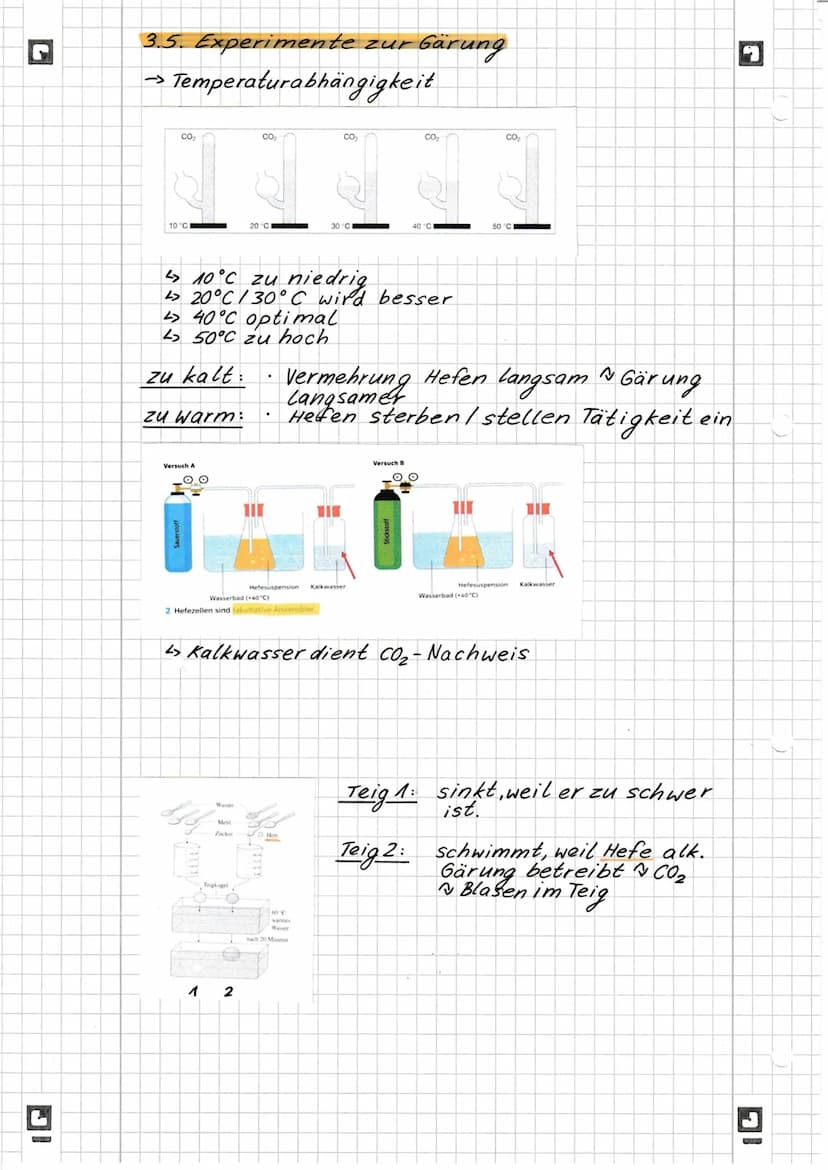 3.5. Experimente zur Gärung
→ Temperaturabhängigkeit
CO₂ CO₂ CO₂ CO₂ CO₂
10 °C 20 °C 30 °C 40 °C 50 °C
↳ 10°C zu niedrig
↳ 20°C/30°C wird besser
↳ 40°C optimal
↳ 50°C zu hoch
zu kalt: · Vermehrung Hefen langsam ↷ Gärung
langsamer
zu warm: · Hefen sterben/stellen Tätigkeit ein
Versuch A
Sauerstoff
Hefesuspension Kalkwasser
Wasserbad (+40°C)
Versuch B
Stickstoff
Hefesuspension Kalkwasser
Wasserbad (+40°C)
2 Hefezellen sind fakultative Anaerobier.
↳ Kalkwasser dient CO₂-Nachweis
Wasser
Mehl
Zucker
Hefe
Teigkugel
warmes
Wasser
nach 20 Minuten
1 2
Teig 1: sinkt, weil er zu schwer
ist.
Teig 2: schwimmt, weil Hefe alk.
Gärung betreibt ↷ CO₂
↷ Blasen im Teig